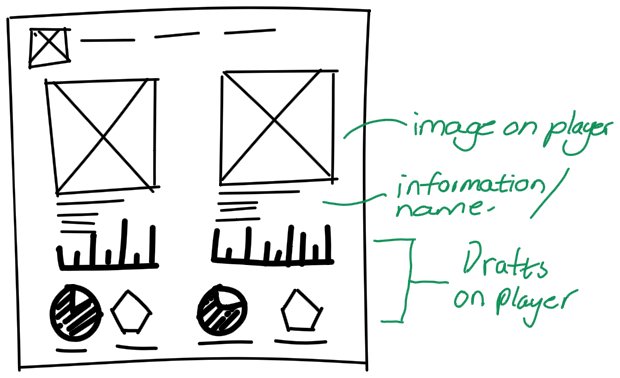 image on player
information /
name.
Drafts
on player